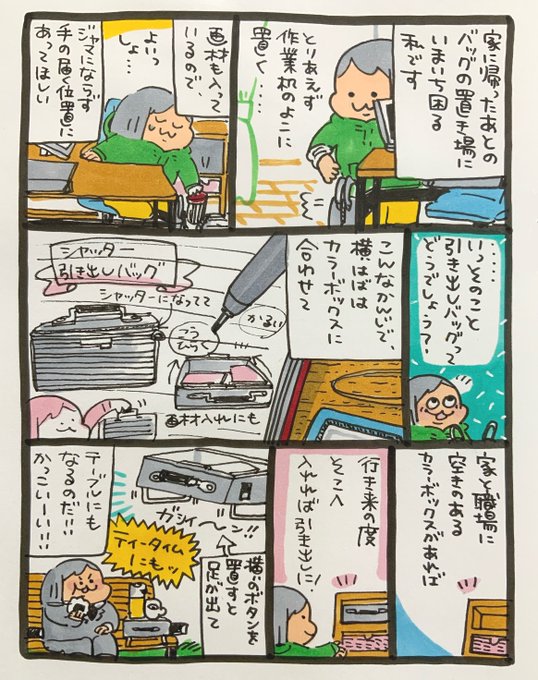 家に帰ったあとの
バッグの置き場に
いまいち困る
私です
とりあえず
作業机のよこに
置く……
画材も入って
いるので、
よいっ
しょ…
ジャマにならず
手の届く位置に
あってほしい
……
いっそのこと
引き出しバッグって
どうでしょう?
こんなかんじで、
横はばは
カラーボックスに
合わせて
シャッター
引き出しバッグ
シャッターになってて
かるい
つう
ひらく
画材入れにも
家と職場に
空きのある
カラーボックスがあれば
行き来の度
そこへ
入れれば引き出しに!
横のボタンを
置すと
足が出て
ガシィーン!!
テーブルにも
なるのだ!!
かっこいーい!!
ティータイム
にもッ